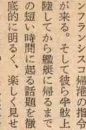 ンフランシスコ帰港の指令
が来る。そして彼ら半舷上
陸してから艦艇に帰るまで
の短い時間に起る話題を徹
底的に明るく、楽しく見せ